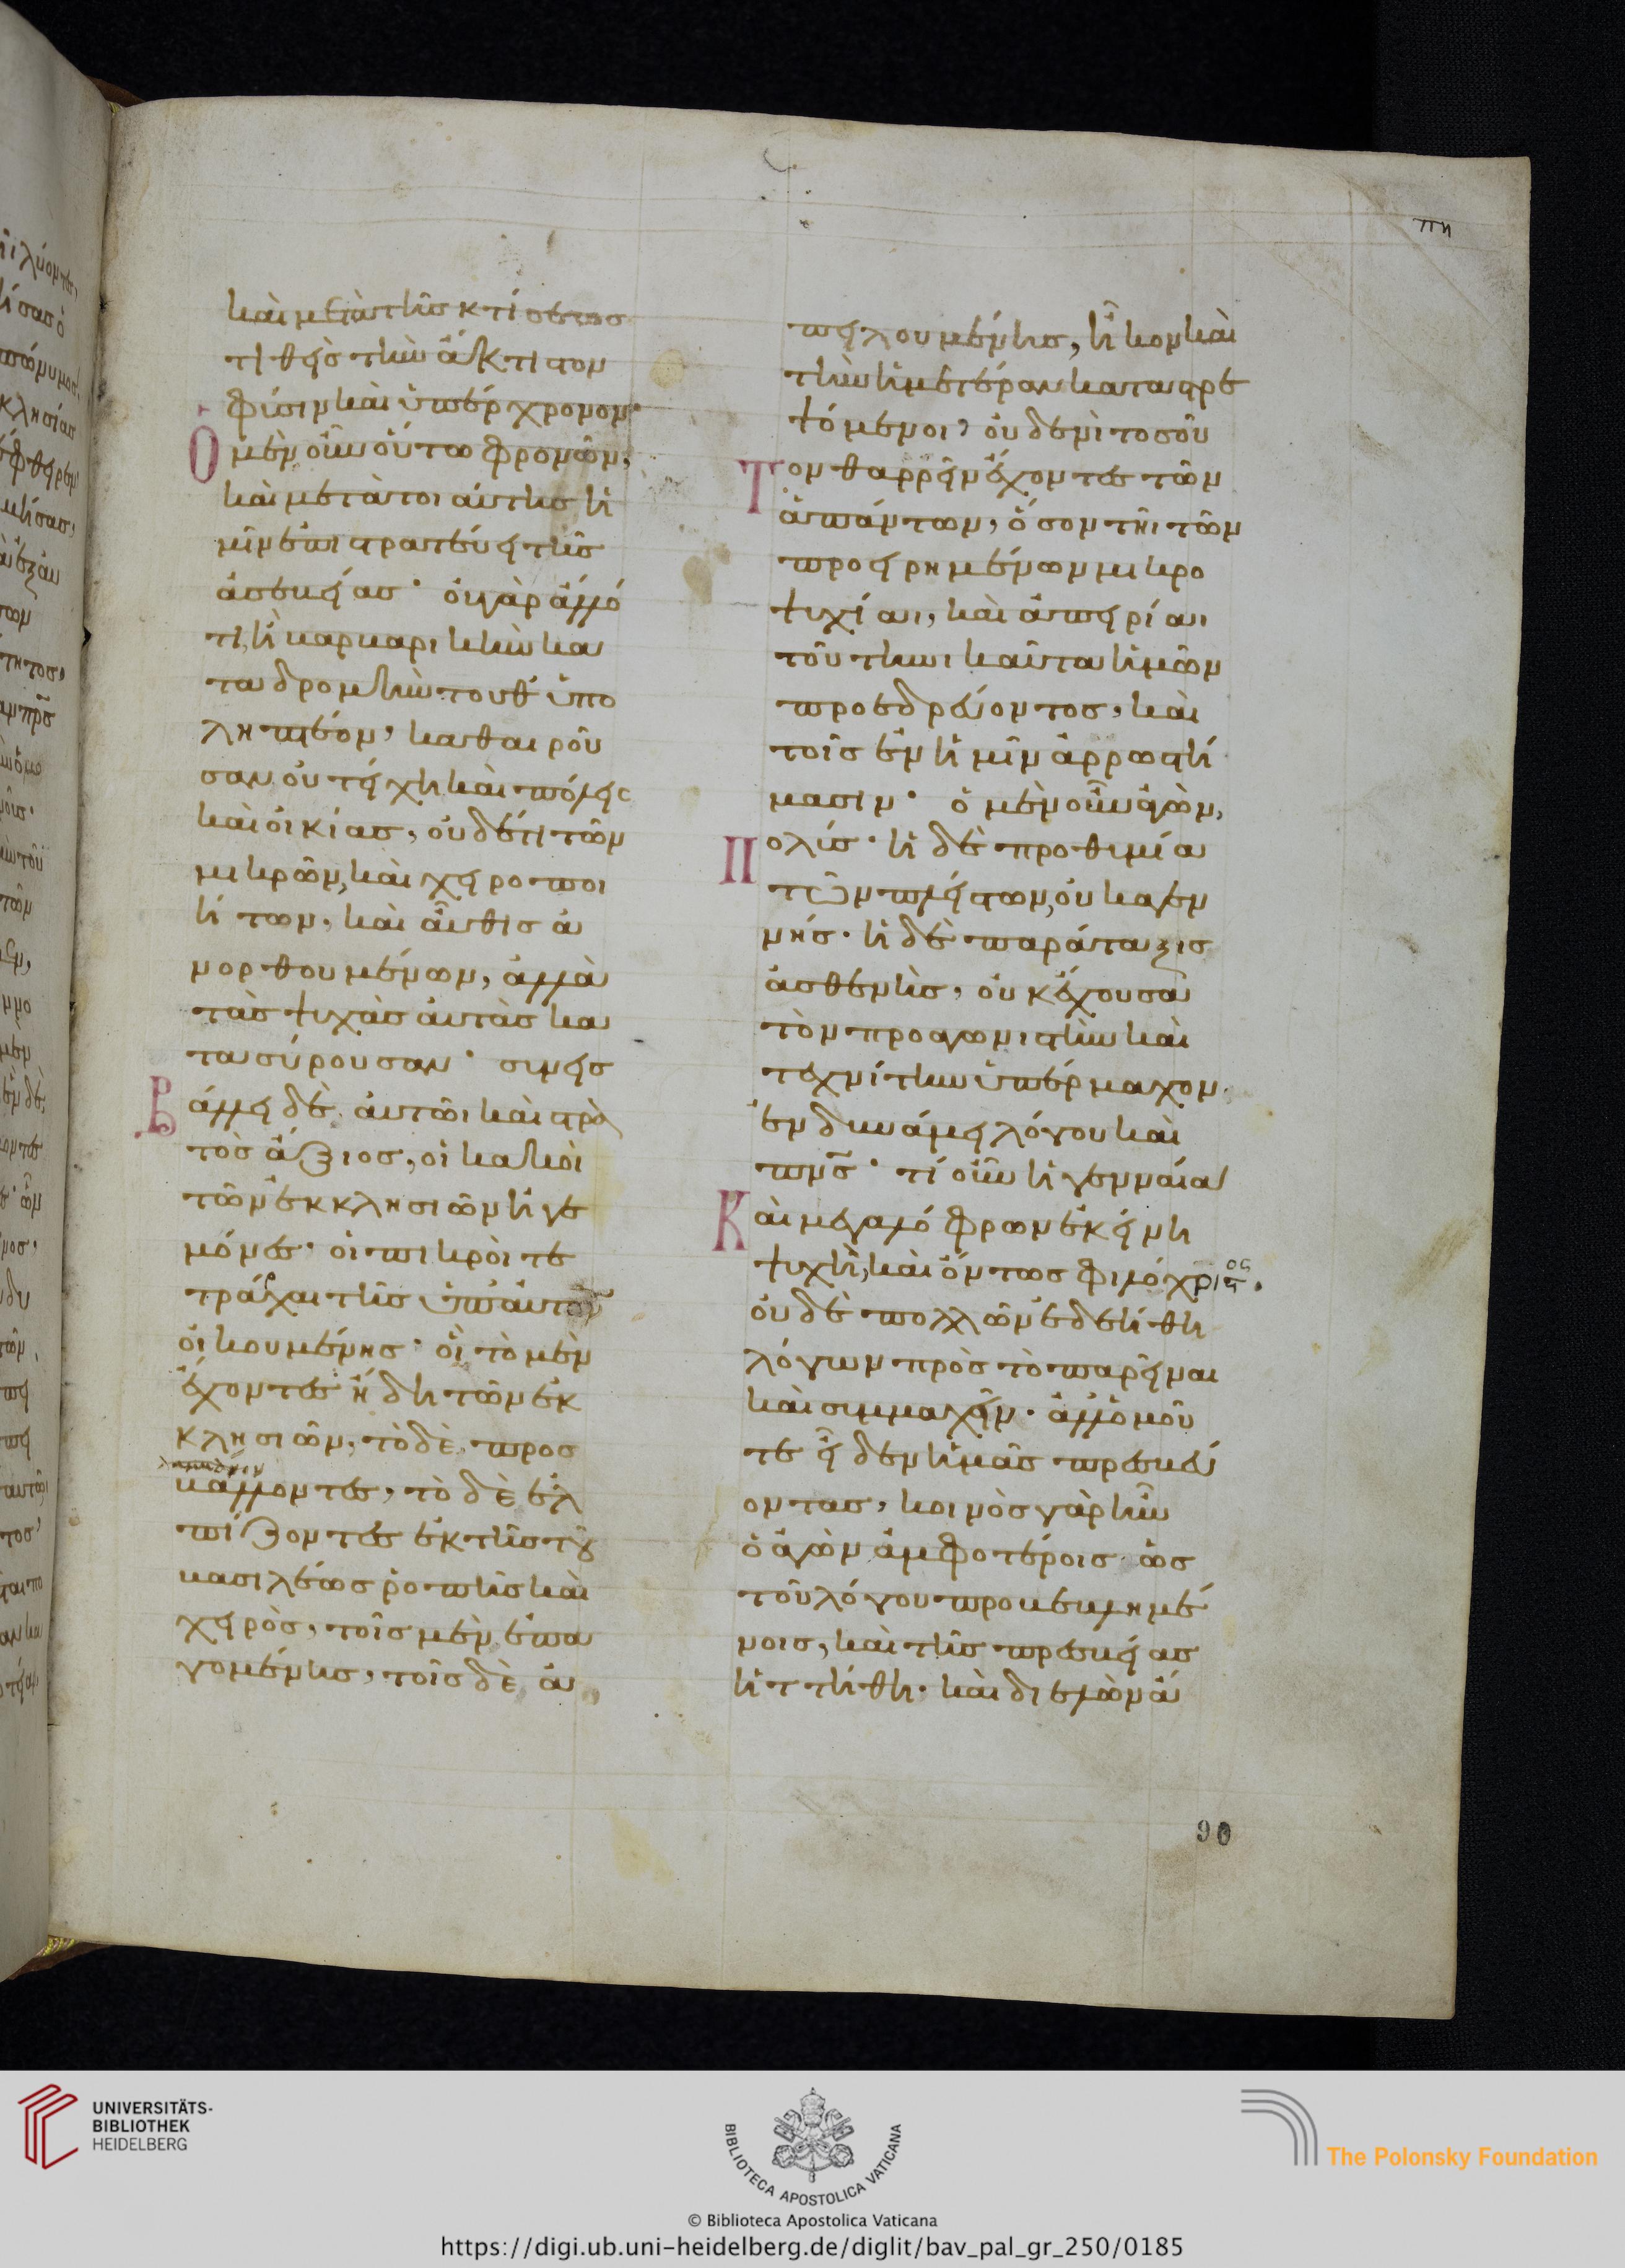 πη
καὶ μετὰ τῆς κτίσεως
τιθεὶς τὴν ἄκτιστον
φύσιν καὶ ὑπὲρ χρονον·
Ὁ μὲν οὖν οὕτω φρονῶν,
καὶ μετὰ τοιαύτης ἡ
μῖν ἐπιστρατεύει τῆς
ἀσεβείας· οὐ γὰρ ἄλλό
τι, ἢ βαρβαρικὴν κα
ταδρομὴν τοῦθ ὑπο
ληπτέον, καθαιροῦ
σαν οὐ τείχη καὶ πόλεις
καὶ οἰκίας, οὐδέ τι τῶν
μικρῶν, καὶ χειροποι
ήτων, καὶ αὖθις ἀ
νορθουμένων, ἀλλὰ
τὰς ψυχὰς αὐτὰς κα
τασύρουσαν· συνεισ
Βάλλει δὲ αὐτῶι καὶ στρα
τὸς ἄξιος, οἱ κακοὶ
τῶν ἐκκλησιῶν ἡγε
μόνες· οἱ πικροὶ τε
τράρχαι τῆς ὑπ᾽ αὐτὸν
οἰκουμένης· οἳ τὸ μὲν
ἔχοντες ἤδη τῶν ἐκ
κλησιῶν, τὸ δὲ προσ
βάλλοντες, τὸ δὲ ἐλ
πίζοντες ἐκ τῆς τοῦ
βασιλέως ῥοπῆς καὶ
χειρὸς, τοῖς μὲν ἐπα
γομένης, τοῖς δὲ ἀ
πειλουμένης, ἧκον καὶ
τὴν ἡμετέραν καταστρε
ψόμενοι, οὐδενὶ τοσοῦ
Τον θαρρεῖν ἔχοντες τῶν
ἁπάντων, ὅσον τῆι τῶν
προειρημένων μικρο
ψυχίαι, καὶ ἀπειρίαι
τοῦ τηνικαῦτα ἡμῶν
προεδρεύοντος, καὶ
τοῖς ἐν ἡμῖν ἀρρωστή
μασιν· ὁ μὲν οὖν ἀγὼν,
Πολύς· ἡ δὲ προθυμία
τῶν πλείστων, οὐκ ἀγεν
νής· ἡ δὲ παράταξις
ἀσθενὴς, οὐκ ἔχουσα
τὸν προαγωνιστὴν καὶ
τεχνίτην ὑπέρμαχον
ἐν δυνάμει λόγου καὶ
πνς· τί οὖν ἡ γενναία
Καὶ μεγαλόφρων ἐκείνη
ψυχὴ, καὶ ὄντως φιλόχριστος.
οὐδὲ πολλῶν ἐδεήθη
λόγων πρὸς τὸ παρεῖναι
καὶ συμμαχεῖν· ἀλλ᾽ ὁμοῦ
τε εἶδεν ἡμᾶς πρεσβεύ
οντας, κοινὸς γὰρ ἦν
ὁ ἀγὼν ἀμφοτέροις ὡς
τοῦ λόγου προβεβλημέ
νοις, καὶ τῆς πρεσβείας
ἡττήθη· καὶ διελὼν ἄ
90
UNIVERSITÄTS-
BIBLIOTHEK
HEIDELBERG
BIBLIOTECA APOSTOLICA VATICANA
The Polonsky Foundation
© Biblioteca Apostolica Vaticana
https://digi.ub.uni-heidelberg.de/diglit/bav_pal_gr_250/0185